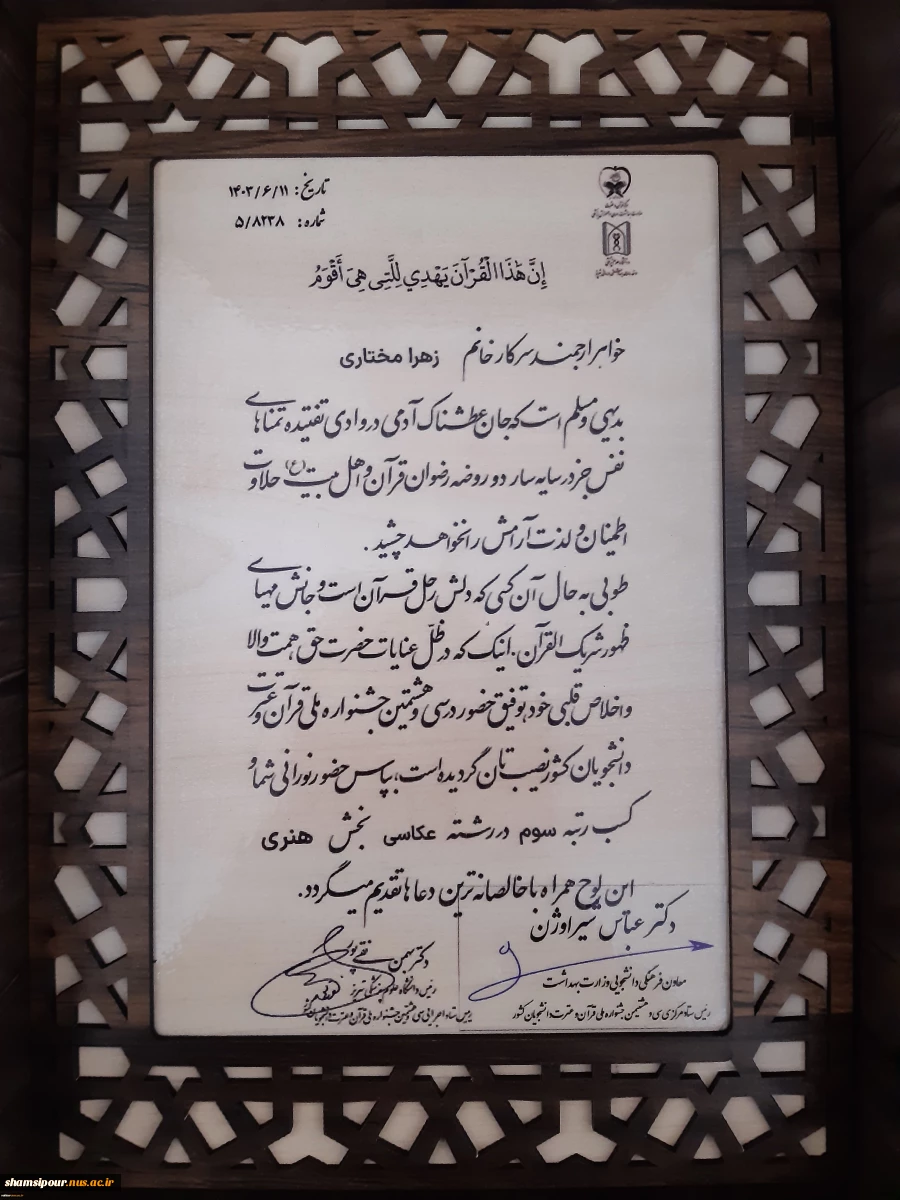 تاریخ: ۱۴۰۳/۶/۱۱
شماره: ۵/۸۲۳۸
إِنَّ هَٰذَا الْقُرْآنَ يَهْدِي لِلَّتِي هِيَ أَقْوَمُ
خواهر ارجمند سرکار خانم زهرا مختاری
بدیهی و مسلم است که جان عطشناک آدمی در وادی تفتیده تمناهای
نفس جز در سایه سار دو روضه رضوان قرآن و اهل بیت (ع) حلاوت
اطمینان و لذت آرامش را نخواهد چشید.
طوبی به حال آن کسی که دلش رحل قرآن است و جانش مهیای
ظهور شریک القرآن. اینک که در ظلّ عنایات حضرت حق، همت والا
و اخلاص قلبی خود، توفیق حضور در سی و هشتمین جشنواره ملی قرآن و عترت
دانشجویان کشور نصیب تان گردیده است، بپاس حضور نورانی شما و
کسب رتبه سوم در رشته عکاسی بخش هنری
این لوح همراه با خالصانه ترین دعاها تقدیم میگردد.
دکتر عباس شیراوژن
معاون فرهنگی دانشجویی وزارت بهداشت
رئیس ستاد مرکزی سی و هشتمین جشنواره ملی قرآن و عترت دانشجویان کشور
دکتر بهمن نقی پور
رئیس دانشگاه علوم پزشکی تبریز
رئیس ستاد اجرایی سی و هشتمین جشنواره ملی قرآن و عترت دانشجویان کشور
shamsipour.nus.ac.ir